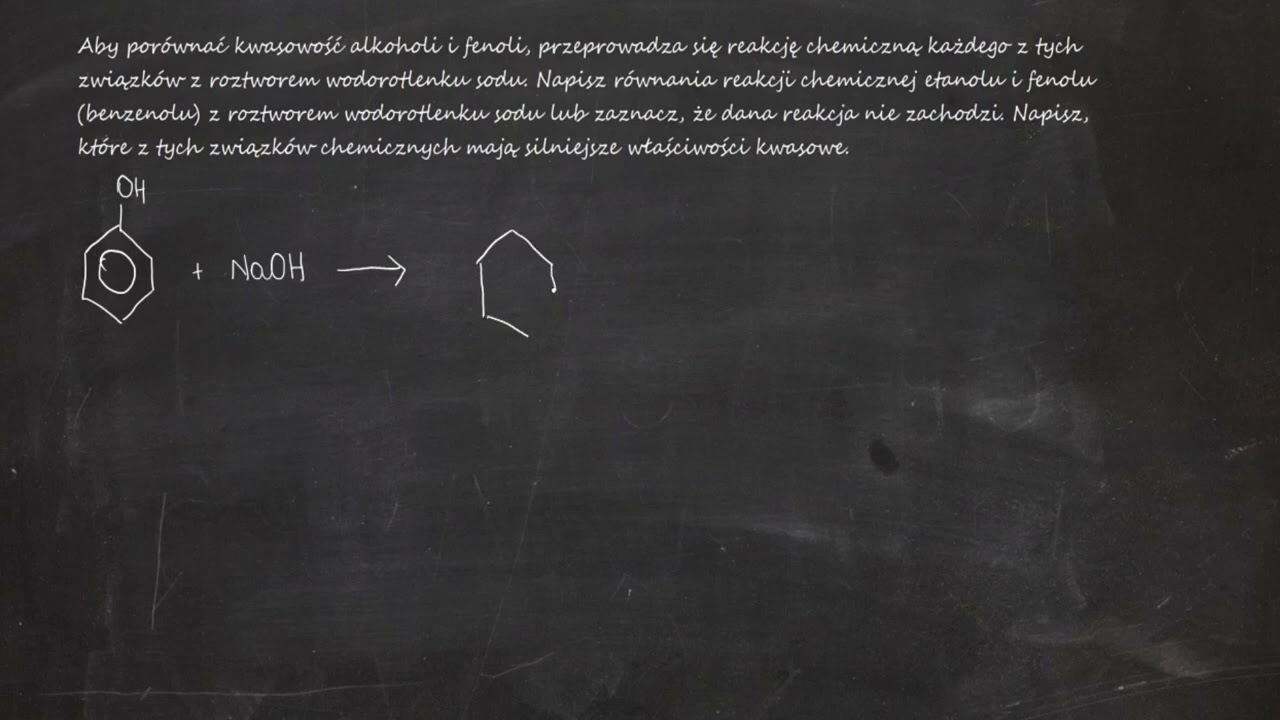 Aby porównać kwasowość alkoholi i fenoli, przeprowadza się reakcję chemiczną każdego z tych
związków z roztworem wodorotlenku sodu. Napisz równania reakcji chemicznej etanolu i fenolu
(benzenolu) z roztworem wodorotlenku sodu lub zaznacz, że dana reakcja nie zachodzi. Napisz,
które z tych związków chemicznych mają silniejsze właściwości kwasowe.
OH
+ NaOH →